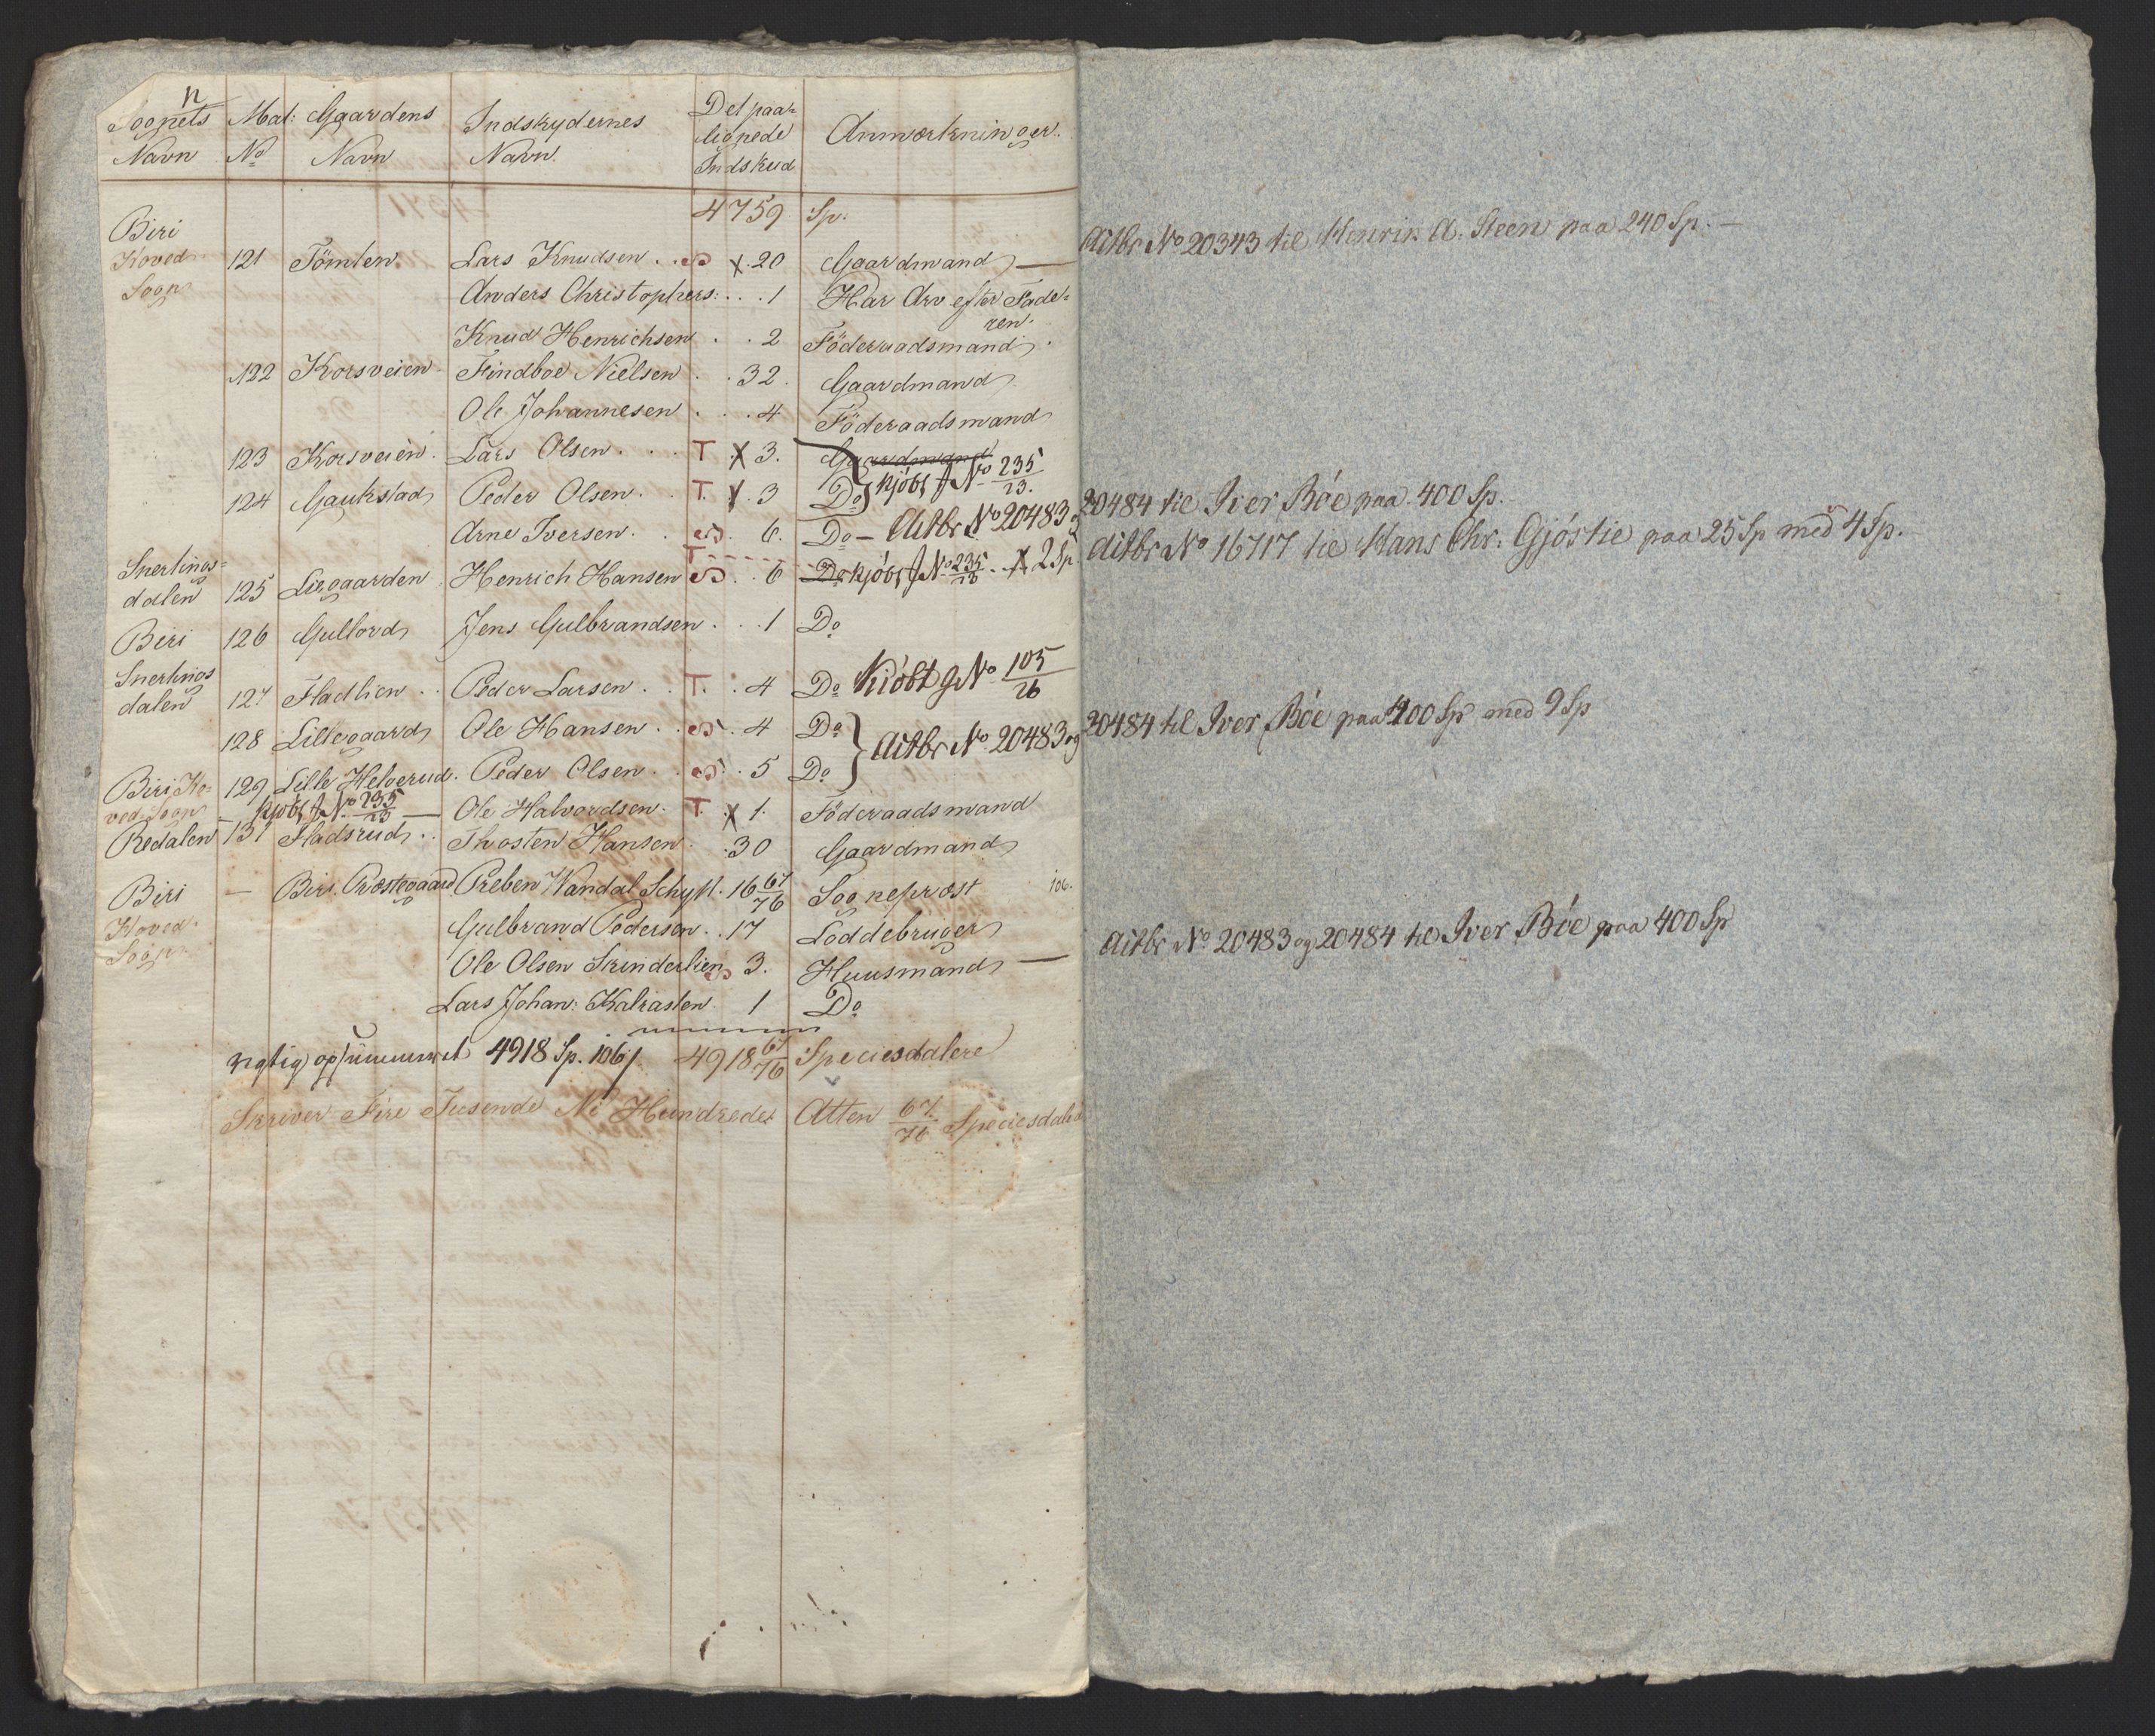 Sognets Mat: Gaardens Indskydernes Det paa= Anmærkninger.
Navn No Navn Navn. lignede
Indskud
4759 Sp.
Biri
Hoved 121 Tömten Lars Knudsen . . S X . 20 Gaardmand — Actbr No 20343 til Henrik A. Steen paa 240 Sp. —
Sogn Anders Christophers: . . . 1 Har Arv efter Fade=
ren.
Knud Henrichsen . . 2 Föderaadsmand .
122 Korsveien Findboe Nielsen . . 32 . Gaardmand
Ole Johannesen . . . 4 Föderaadsmand
123 Korsveien . Lars Olsen . . . T . X 3 . Gaardmand
124 Gaukstad Peder Olsen . . T. X . 3 Do } Kjöbt f No 235/23.
Arne Iversen . . S . 6 . Do — Actbr No 20483 og 20484 til Iver Böe paa 400 Sp.
Snertings=
dalen 125 Liegaarden Henrich Hansen T S . . 6 Do Kjöbt f No 235/23 . X 2 Sp. Actbr No 16717 til Hans Chr. Gjöstie paa 25 Sp med 4 Sp.
Biri 126 Gullord Jens Gulbrandsen . . . 1 Do
Snertings
dalen 127 Fladlien . . Peder Larsen . . T. . 4 Do Kiöbt g No 105/26
128 Lillegaard Ole Hansen . . S . 4 Do
} Actbr No 20483 og 20484 til Iver Böe paa 400 Sp med 9 Sp
Biri Ho= 129 Lille Helverud . Peder Olsen . . S . . 5 Do
ved Sogn — Kjöbt f No 235/23 — Ole Halvordsen . T . X 1 . Föderaadsmand
Redalen 131 Fladsrud . . Thosten Hansen . 30 Gaardmand
Biri — Biri Præstegaard Preben Wandal Schytt . 16 67/76 Sogneprest 106.
Hoved Gulbrand Pedersen . . 17 Loddebruger
Sogn Ole Olsen Skinderlien S 3 . Huusmand — Actbr No 20483 og 20484 til Iver Böe paa 400 Sp
Lars Johan: Kalrasten . 1 Do
rigtig opsummeret 4918 Sp. 106 s. 4918 67/76 Speciesdalere
Skriver Fire Tusende Ni Hundrede Atten 67/76 Speciesdaler